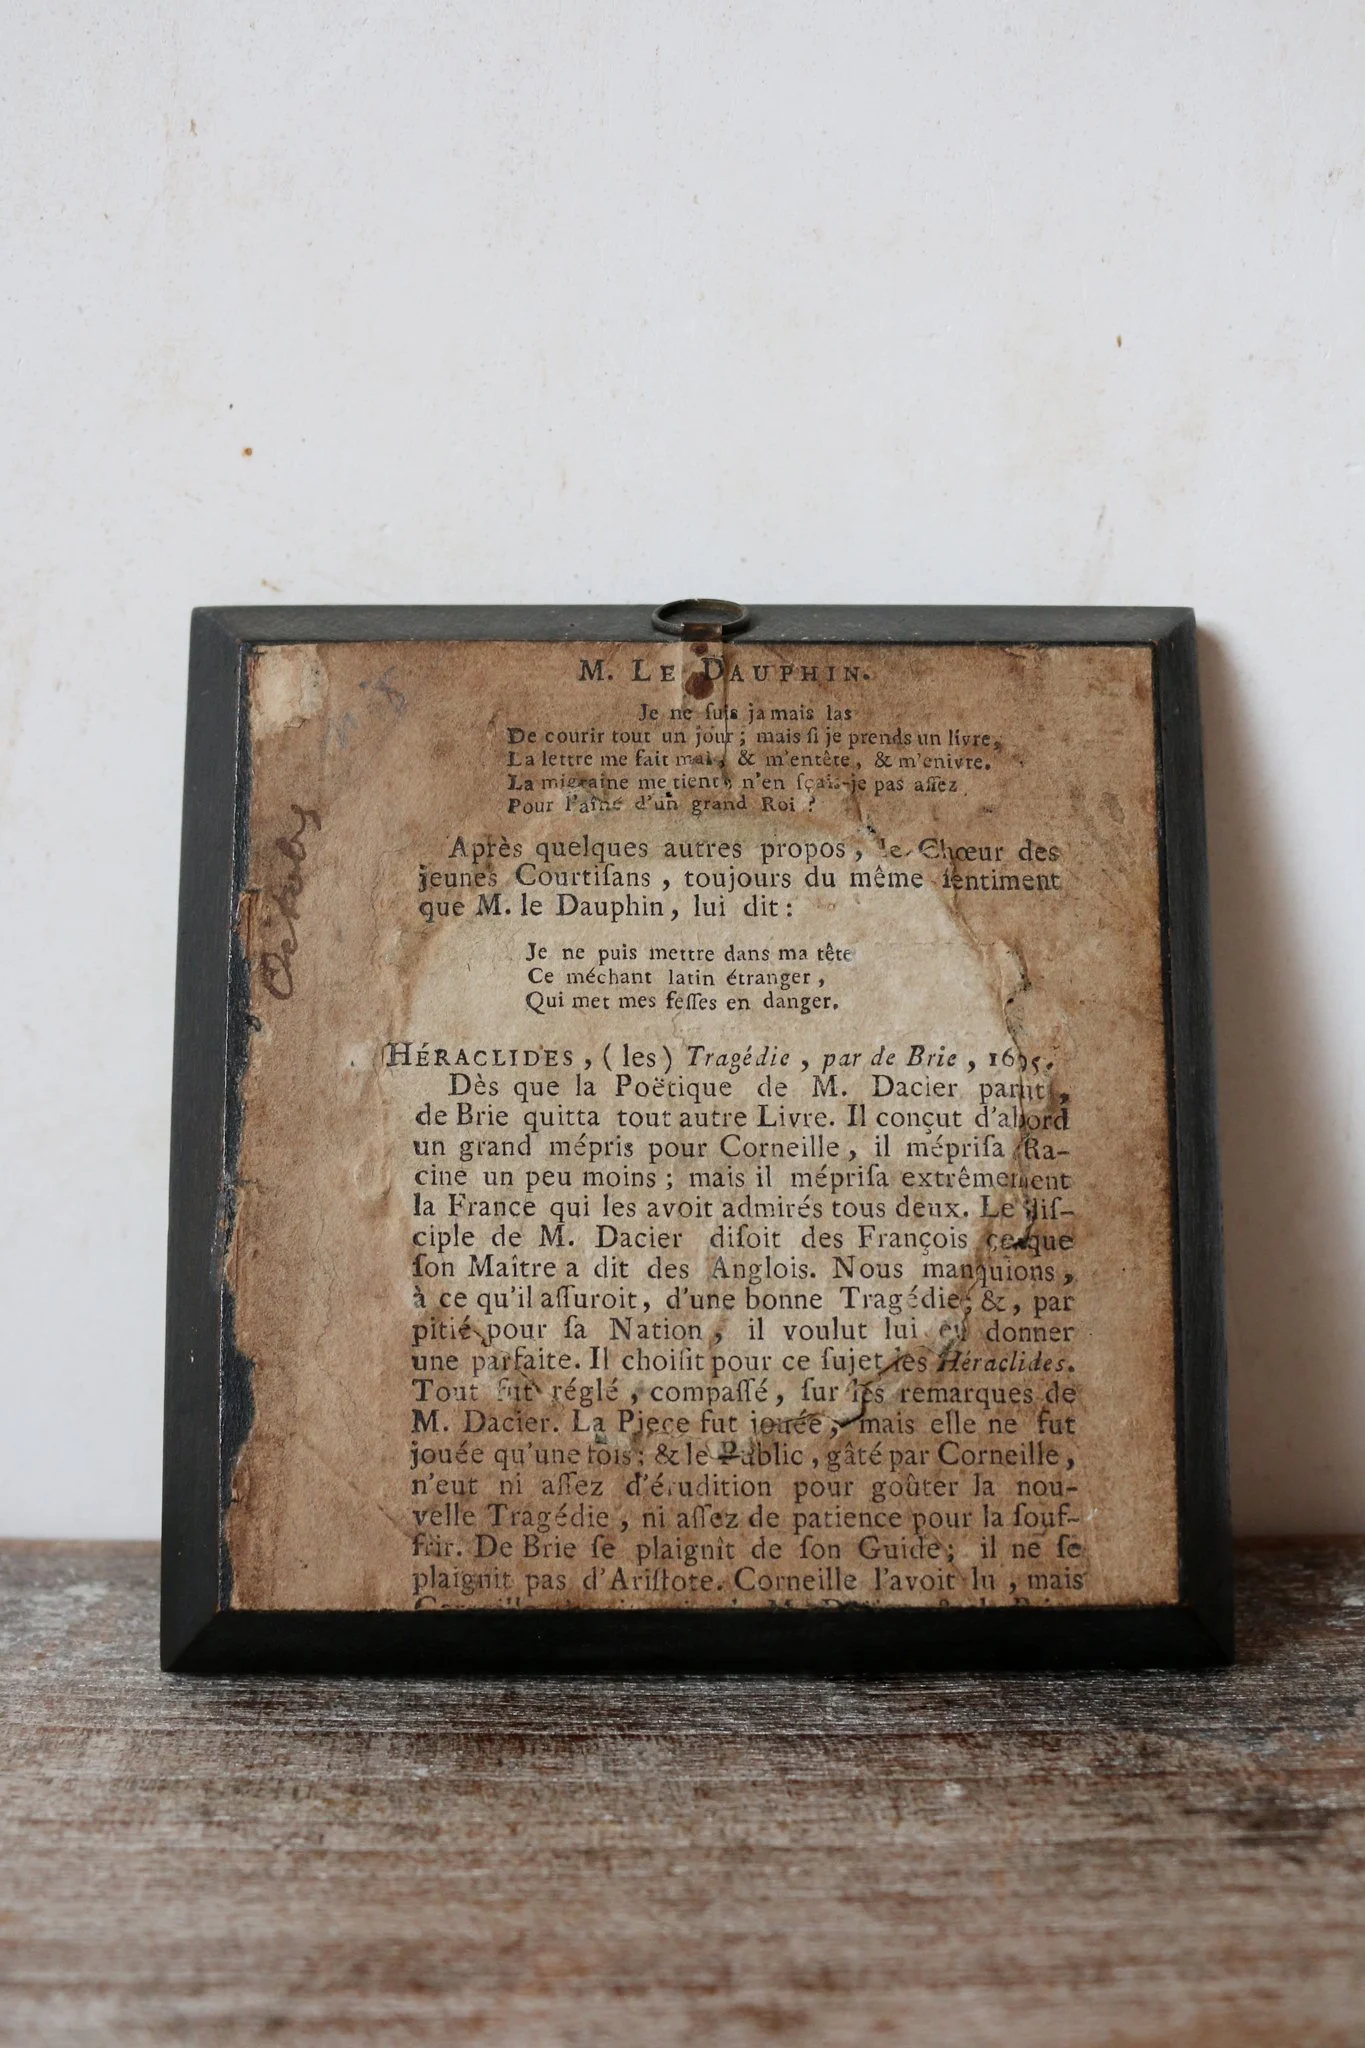 M. LE DAUPHIN.
Je ne ſuis jamais las
De courir tout un jour ; mais ſi je prends un livre,
La lettre me fait mal, & m'entête, & m'enivre.
La migraine me tient ; n'en ſçais-je pas aſſez
Pour l'aîné d'un grand Roi ?
Après quelques autres propos, le Chœur des
jeunes Courtiſans, toujours du même ſentiment
que M. le Dauphin, lui dit :
Je ne puis mettre dans ma tête
Ce méchant latin étranger,
Qui met mes feſſes en danger.
HÉRACLIDES, (les) Tragédie, par de Brie, 1695.
Dès que la Poëtique de M. Dacier parut,
de Brie quitta tout autre Livre. Il conçut d'abord
un grand mépris pour Corneille, il mépriſa Ra-
cine un peu moins ; mais il mépriſa extrêmement
la France qui les avoit admirés tous deux. Le diſ-
ciple de M. Dacier diſoit des François ce que
ſon Maître a dit des Anglois. Nous manquions,
à ce qu'il aſſuroit, d'une bonne Tragédie ; &, par
pitié pour ſa Nation, il voulut lui en donner
une parfaite. Il choiſit pour ce ſujet les Héraclides.
Tout fut réglé, compaſſé, ſur les remarques de
M. Dacier. La Piece fut jouée, mais elle ne fut
jouée qu'une fois ; & le Public, gâté par Corneille,
n'eut ni aſſez d'érudition pour goûter la nou-
velle Tragédie, ni aſſez de patience pour la ſouf-
frir. De Brie ſe plaignit de ſon Guide ; il ne ſe
plaignit pas d'Ariſtote. Corneille l'avoit lu, mais